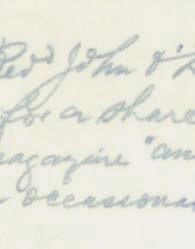 Revd John O'
for a share
magazine "an
occasiona